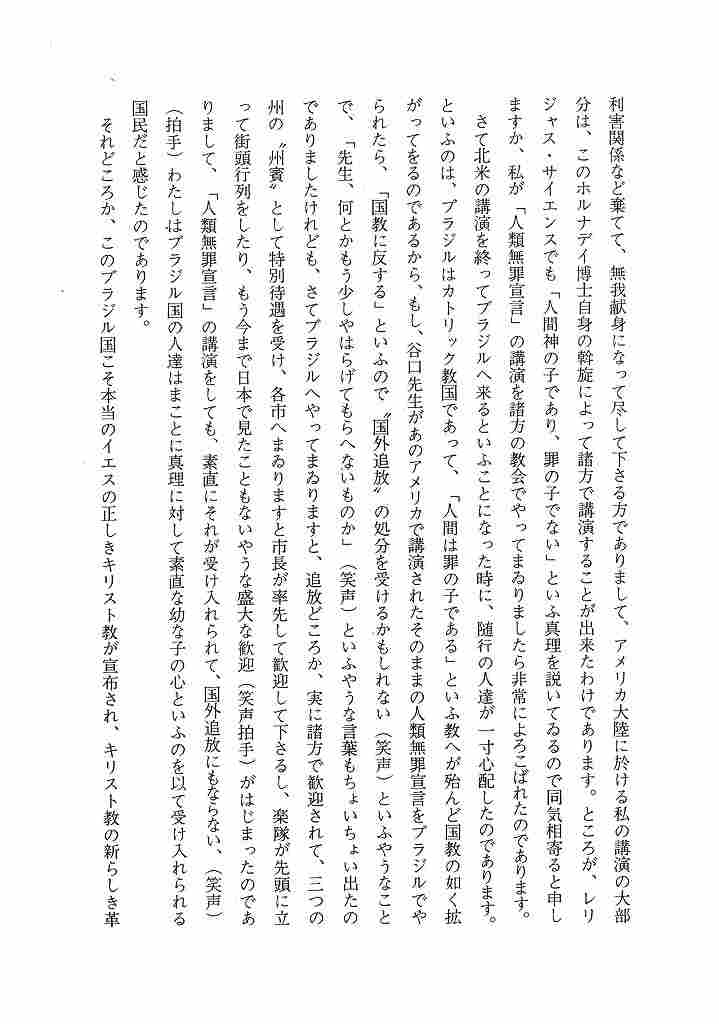 利害関係など棄てて、無我献身になって尽して下さる方でありまして、アメリカ大陸に於ける私の講演の大部
分は、このホルナデイ博士自身の斡旋によって諸方で講演することが出来たわけであります。ところが、レリ
ジャス・サイエンスでも「人間神の子であり、罪の子でない」といふ真理を説いてゐるので同気相寄ると申し
ますか、私が「人類無罪宣言」の講演を諸方の教会でやってまゐりましたら非常によろこばれたのであります。
さて北米の講演を終ってブラジルへ来るといふことになった時に、随行の人達が一寸心配したのであります。
といふのは、ブラジルはカトリック教国であって、「人間は罪の子である」といふ教へが殆んど国教の如く拡
がってをるのであるから、もし、谷口先生があのアメリカで講演されたそのままの人類無罪宣言をブラジルでや
られたら、「国教に反する」といふので〝国外追放〟の処分を受けるかもしれない（笑声）といふやうなこと
で、「先生、何とかもう少しやはらげてもらへないものか」（笑声）といふやうな言葉もちょいちょい出たの
でありましたけれども、さてブラジルへやってまゐりますと、追放どころか、実に諸方で歓迎されて、三つの
州の〝州賓〟として特別待遇を受け、各市へまゐりますと市長が率先して歓迎して下さるし、楽隊が先頭に立
って街頭行列をしたり、もう今まで日本で見たこともないやうな盛大な歓迎（笑声拍手）がはじまったのであ
りまして、「人類無罪宣言」の講演をしても、素直にそれが受け入れられて、国外追放にもならない、（笑声）
（拍手）わたしはブラジル国の人達はまことに真理に対して素直な幼な子の心といふのを以て受け入れられる
国民だと感じたのであります。
それどころか、このブラジル国こそ本当のイエスの正しきキリスト教が宣布され、キリスト教の新らしき革